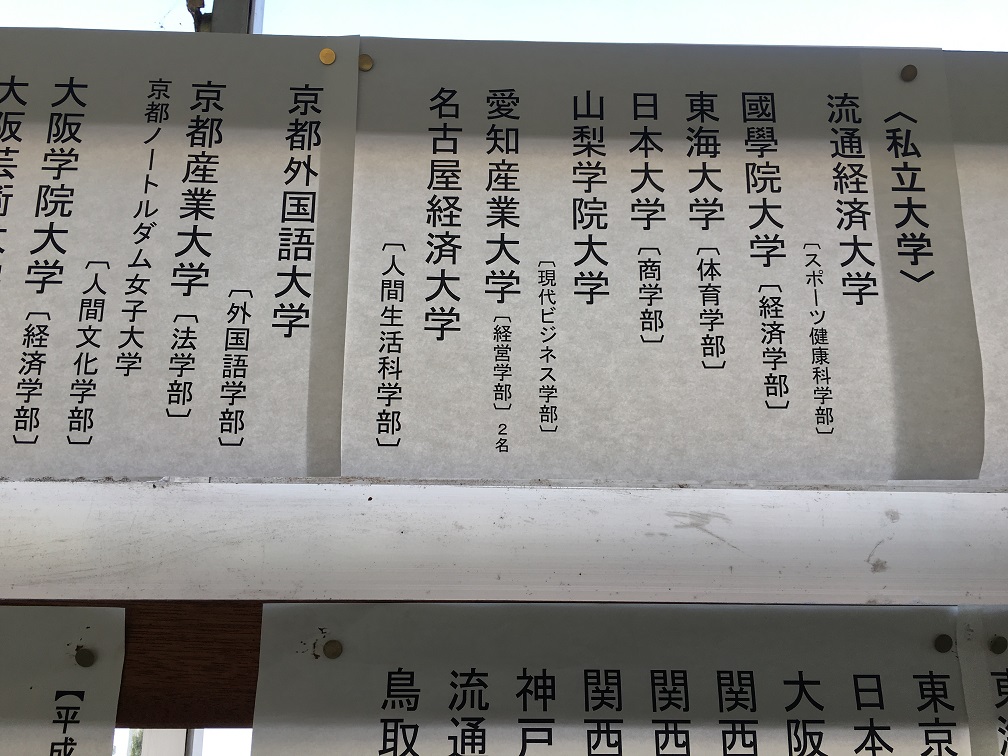 〈私立大学〉
流通経済大学
〔スポーツ健康科学部〕
國學院大学〔経済学部〕
東海大学〔体育学部〕
日本大学〔商学部〕
山梨学院大学
〔現代ビジネス学部〕
愛知産業大学〔経営学部〕2名
名古屋経済大学
〔人間生活科学部〕
京都外国語大学
〔外国語学部〕
京都産業大学〔法学部〕
京都ノートルダム女子大学
〔人間文化学部〕
大阪学院大学〔経済学部〕
大阪芸術大学
東京
日本
大阪
関西
関西
関西
神戸
流通
鳥取
【平成